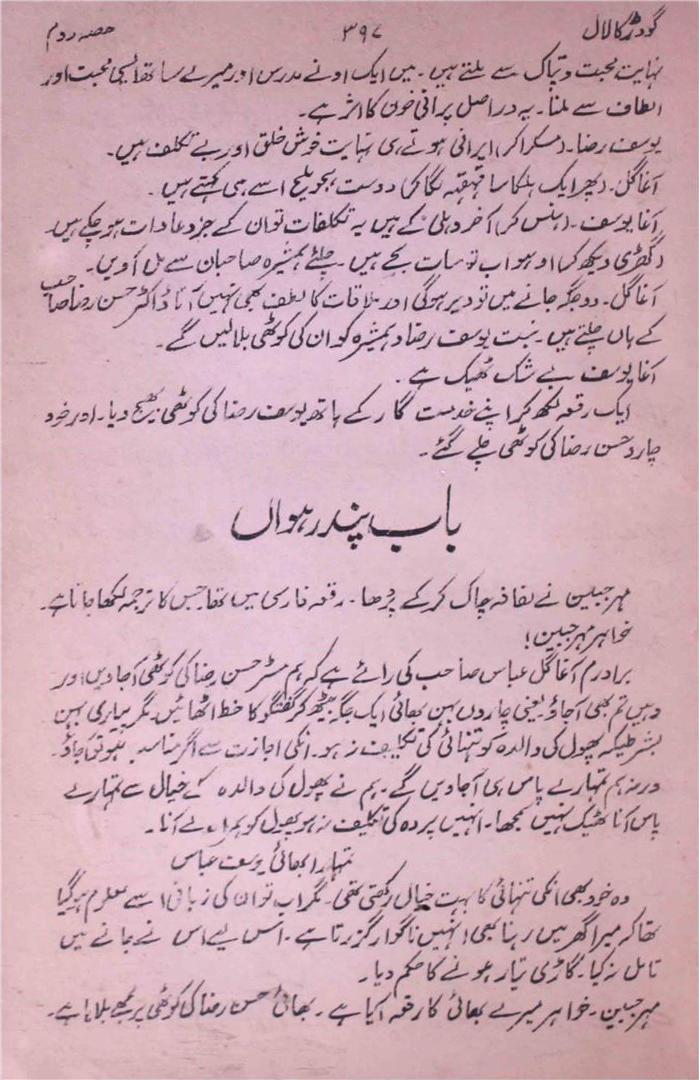 گودڑ کا لال ۳۹۷ حصہ دوم
نہایت محبت و تپاک سے ملتے ہیں۔ میں ایک ادنے مدرس اور میرے ساتھ ایسی محبت اور
الطاف سے ملنا۔ یہ در اصل پرانی خون کا اثر ہے۔
یوسف رضا۔ (مسکرا کر) ایرانی ہوتے ہی نہایت خوش خلق اور بے تکلف ہیں۔
آغا گل۔ (پھر ایک ہلکا سا قہقہہ لگا کر) دوست ہجو ملیح اسے ہی کہتے ہیں۔
آغا یوسف۔ (ہنس کر) آخر دہلی کے ہیں یہ تکلفات تو ان کے جزو عادات ہو چکے ہیں۔
(گھڑی دیکھ کر) اوہو اب تو سات بجے ہیں۔ چلئے ہمشیرہ صاحبان سے مل آویں۔
آغا گل۔ دو جگہ جانے میں تو دیر ہوگی اور ملاقات کا لطف بھی نہیں آتا ڈاکٹر حسن رضا صاحب
کے ہاں چلتے ہیں۔ بنت یوسف رضا و ہمشیرہ کو ان کی کوٹھی بلا لیں گے۔
آغا یوسف بے شک ٹھیک ہے۔
ایک رقعہ لکھ کر اپنے خدمت گار کے ہاتھ یوسف رضا کی کوٹھی بھیج دیا۔ اور خود
چارد حسن رضا کی کوٹھی چلے گئے۔
باب پندرہواں
مہرجبین نے لفافہ چاک کر کے پڑھا۔ رقعہ فارسی میں تھا جس کا ترجمہ لکھا جاتا ہے۔
خواہر مہرجبین!
برادرم آغا گل عباس صاحب کی رائے ہے کہ ہم مسٹر حسن رضا کی کوٹھی آجاویں اور
وہیں تم بھی آجاؤ یعنی چاروں بہن بھائی ایک جگہ بیٹھ کر گفتگو کا حظ اٹھائیں مگر پیاری بہن
بشرطیکہ پھول کی والدہ کو تنہائی کی تکلیف نہ ہو۔ انکی اجازت سے اگر مناسب ہو تو آجاؤ۔
ورنہ ہم تمہارے پاس ہی آجاویں گے۔ ہم نے پھول کی والدہ کے خیال سے تمہارے
پاس آنا ٹھیک نہیں سمجھا۔ انہیں پردہ کی تکلیف نہ ہو پھول کو ہمراہ لے آنا۔
تمہارا بھائی یوسف عباس
وہ خود بھی انکی تنہائی کا بہت خیال رکھتی تھی۔ مگر اب تو ان کی زبانی اسے معلوم ہوگیا
تھا کہ میرا گھر میں رہنا بھی انہیں ناگوار گزرتا ہے۔ اس لیے اس نے جانے میں
تامل نہ کیا۔ گاڑی تیار ہونے کا حکم دیا۔
مہرجبین۔ خواہر میرے بھائی کا رقعہ آیا ہے۔ بھائی حسن رضا کی کوٹھی پر مجھے بلایا ہے۔